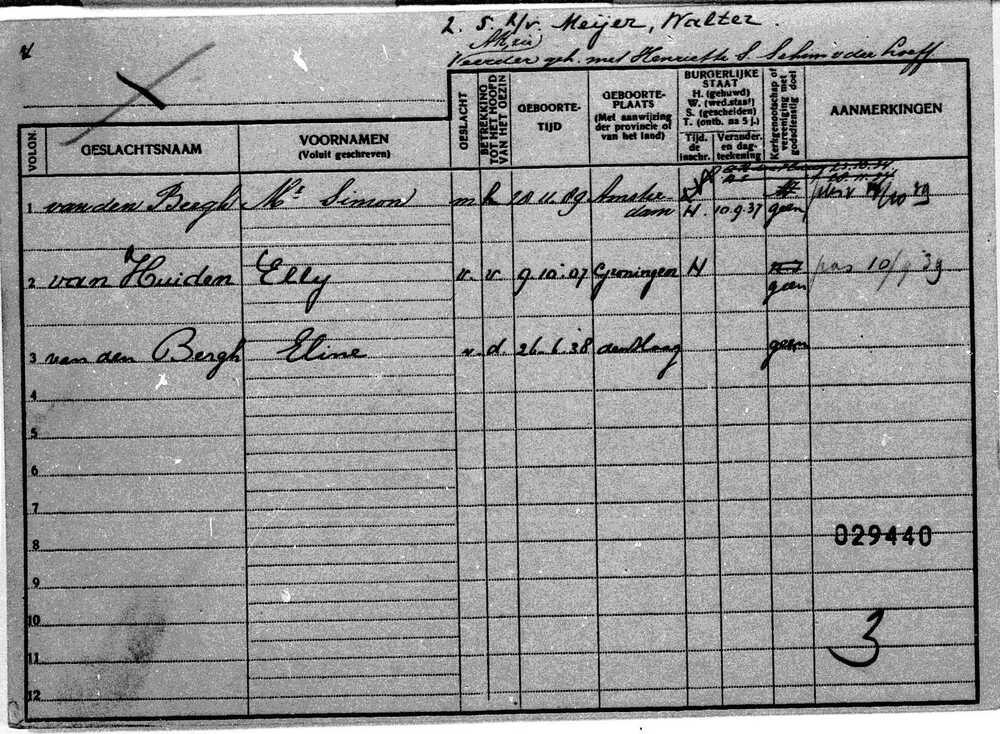 2. 5. h/v. Meijer, Walter.
Veerder geh. met Henriette S. Sehim v der Loeff
VOLGN. GESLACHTSNAAM VOORNAMEN (Voluit geschreven) GESLACHT BETREKKING TOT HET HOOFD VAN HET GEZIN GEBOORTE-TIJD GEBOORTE-PLAATS (Met aanwijzing der provincie of van het land) BURGERLIJKE STAAT H. (gehuwd) W. (wed.staat) S. (gescheiden) T. (ontb. na 5 j.) Tijd. de inschr. Verander. en dag-teekening Kerkgenootschap of vereeniging met godsdienstig doel AANMERKINGEN
1 van den Bergh Mr Simon m h 20.11.09 Amster-dam H. 10.9.37 geen
2 van Huiden Elly v. v 9.10.07 Groningen H geen pas 10/ 39
3 van den Bergh Eline v d 26-6.38 den Haag geen
4
5
6
7
8
029440
9
10
3
11
12